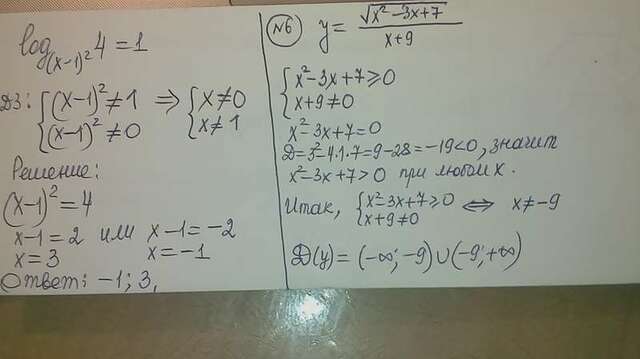 log₍ₓ₋₁₎² 4 = 1
ДЗ: { (x-1)² ≠ 1 => { x ≠ 0
{ (x-1)² ≠ 0 { x ≠ 1
Решение:
(x-1)² = 4
x-1 = 2 или x-1 = -2
x = 3 x = -1
Ответ: -1; 3,
№6 y = √(x²-3x+7) / (x+9)
{ x²-3x+7 ⩾ 0
{ x+9 ≠ 0
x²-3x+7=0
D=3²-4·1·7=9-28=-19<0, значит
x²-3x+7>0 при любом x.
Итак, { x²-3x+7 ⩾ 0 <=> x ≠ -9
{ x+9 ≠ 0
D(y) = (-∞; -9) ∪ (-9; +∞)